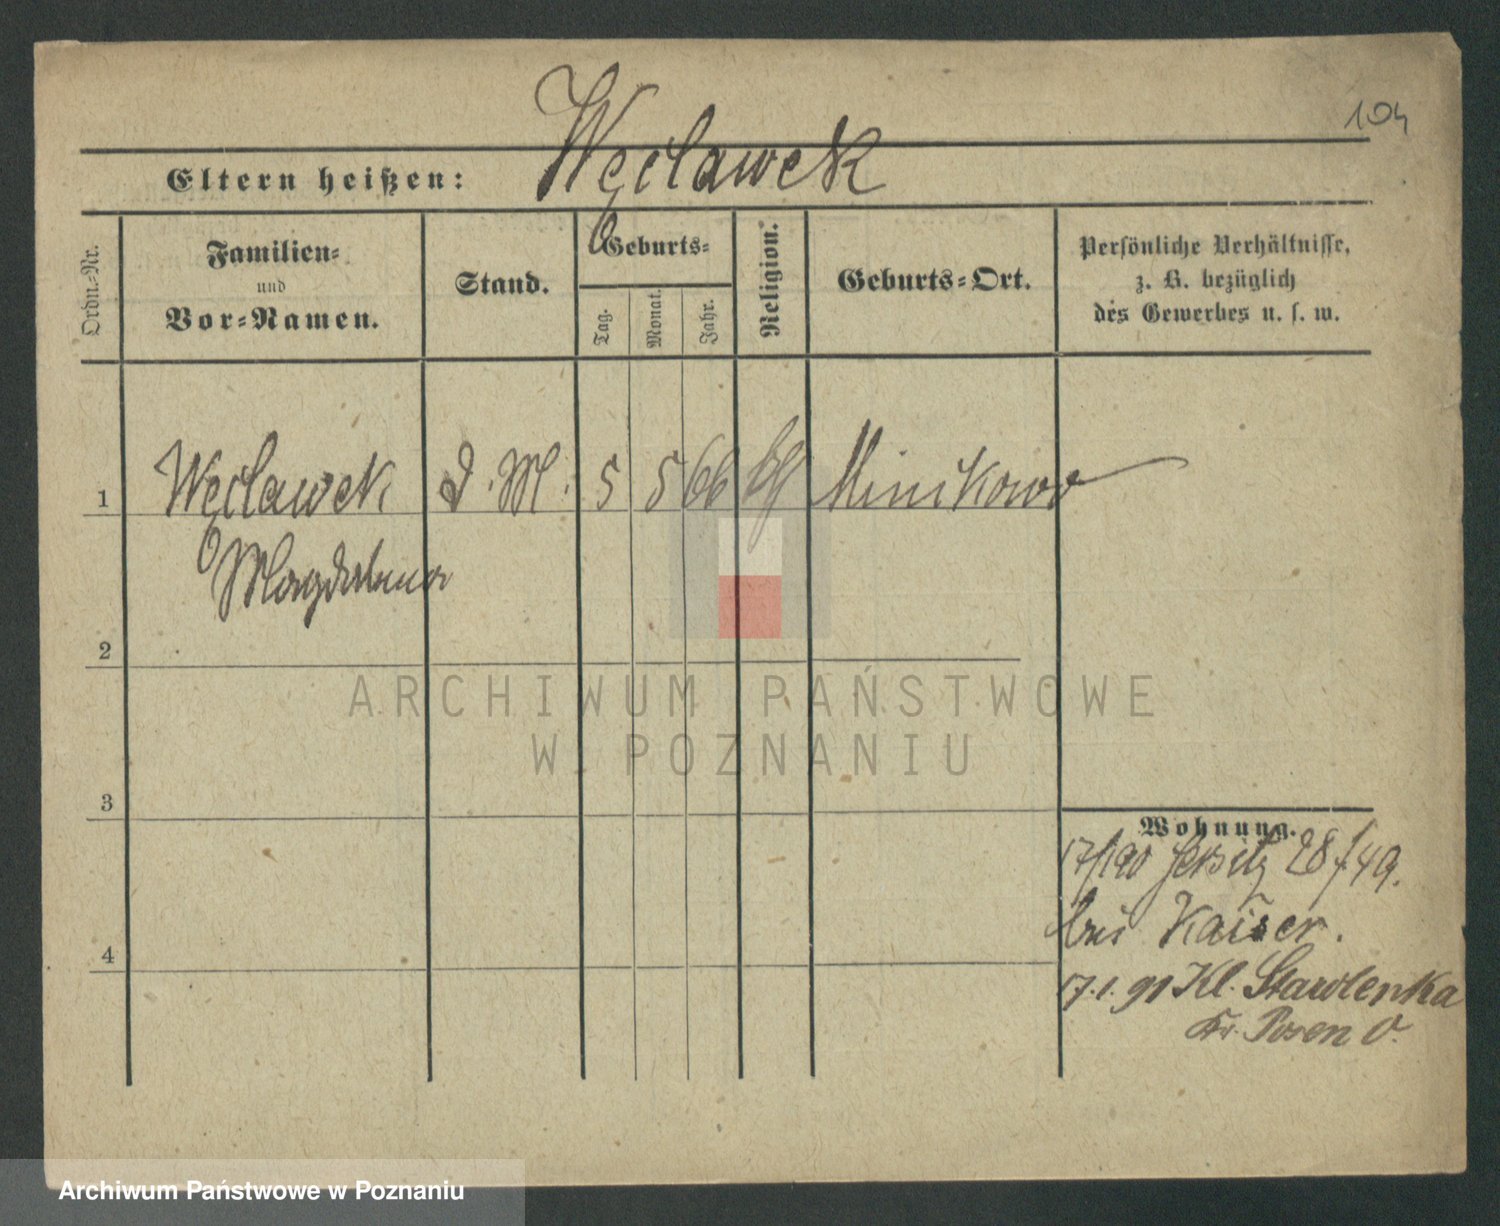 104
Węclawek
Eltern heißen:
Ordn.-Nr.
Familien-
und
Vor-Namen.
Stand.
Geburts-
Tag.
Monat.
Jahr.
Religion.
Geburts-Ort.
Persönliche Verhältnisse,
z. B. bezüglich
des Gewerbes u. s. w.
1 Węclawek D. M. 5 5 66 Minikowo
Magdalena
2
3
4
Wohnung.
17/1 90 Jersitz 28 / 49.
bei Kaiser.
17. 1. 91 Kl. Starolenka
Kr. Posen O.
ARCHIWUM PAŃSTWOWE
W POZNANIU
Archiwum Państwowe w Poznaniu